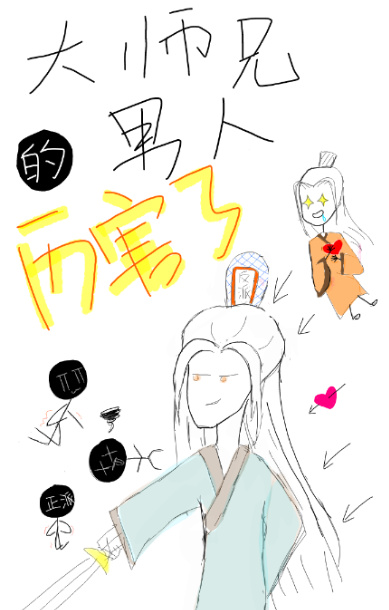 大师兄
的男人
厉害了
反派
正派